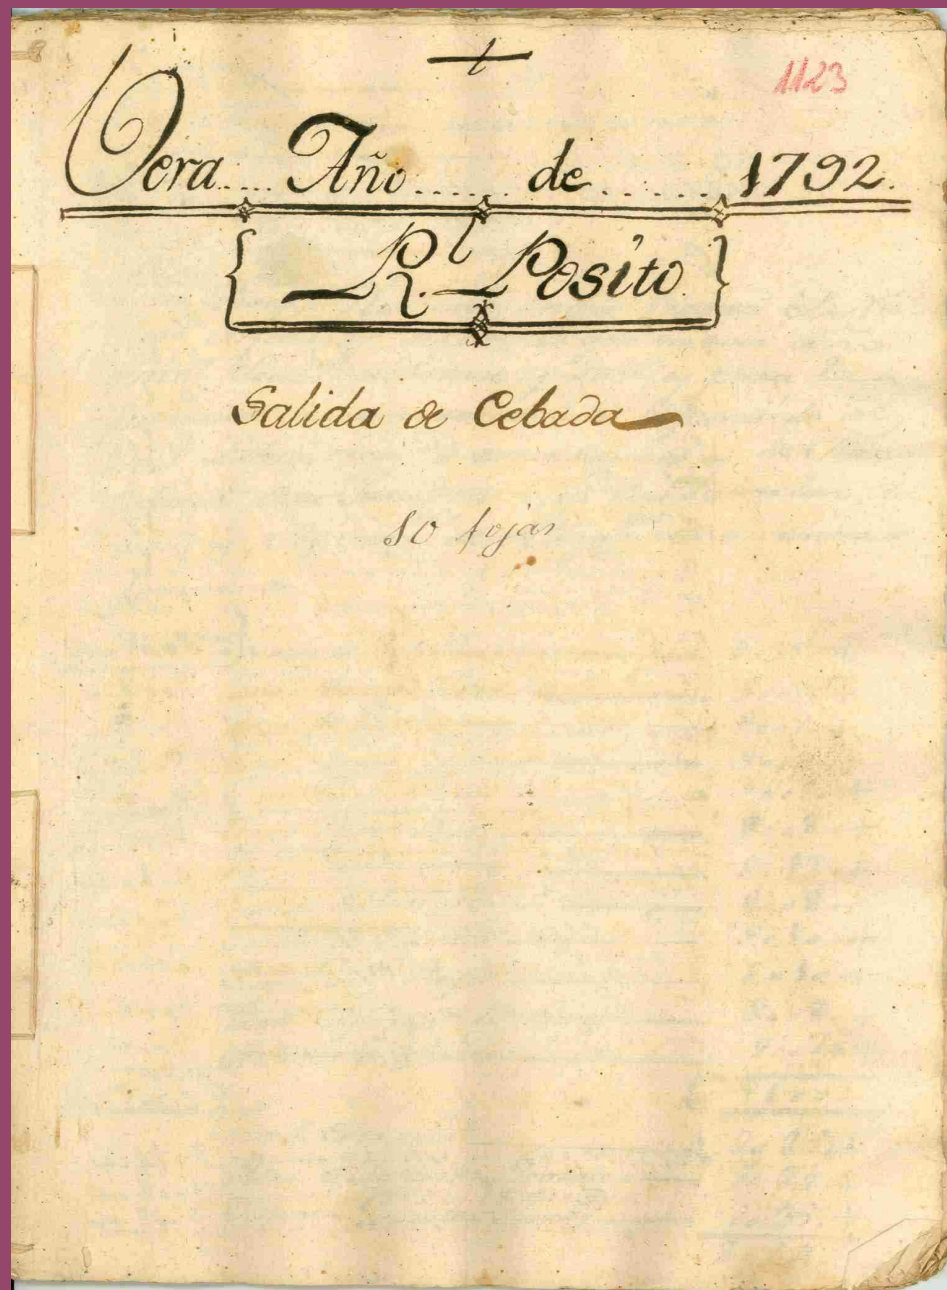 1123
Vera.... Año...... de....... 1792.
R.l Posito.
Salida de Cebada
10 fojas